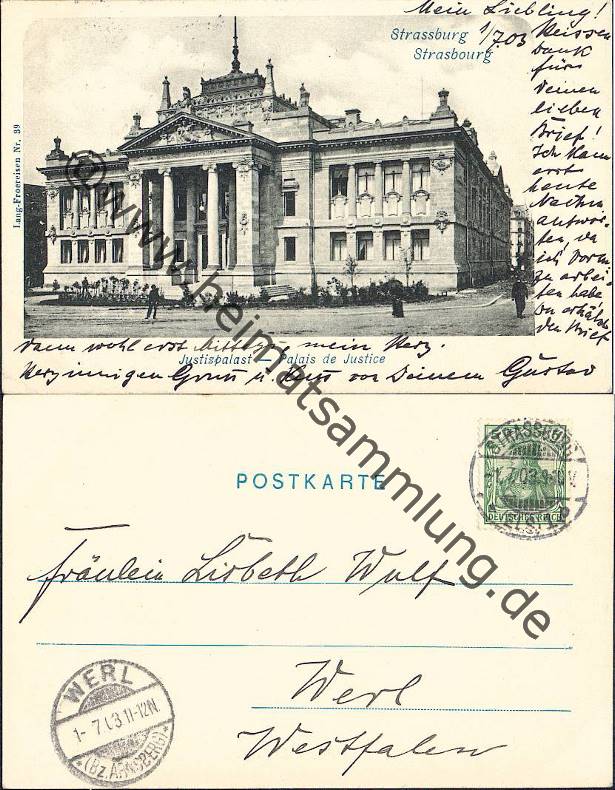 Mein Liebling!
Strassburg
Strasbourg
1/7.03
Heissen
Dank
für
Deinen
lieben
Brief!
Ich kann
erst
heute
Nachm
antwor-
ten, da
ich vorm
zu arbei-
ten habe
Du erhältst
den Brief
dann wohl erst Mittags, mein Herz.
Justizpalast - Palais de Justice
Herzinnigen Gruss u. Kuss von Deinem Gustav
Lang-Froereisen Nr. 39
© www.heimatsammlung.de
POSTKARTE
STRASSBURG
DEUTSCHES REICH
Fräulein Lisbeth Wulf
Werl
Westfalen
WERL
1-7 03 11-12N.
*(Bz. ARNSBERG)*